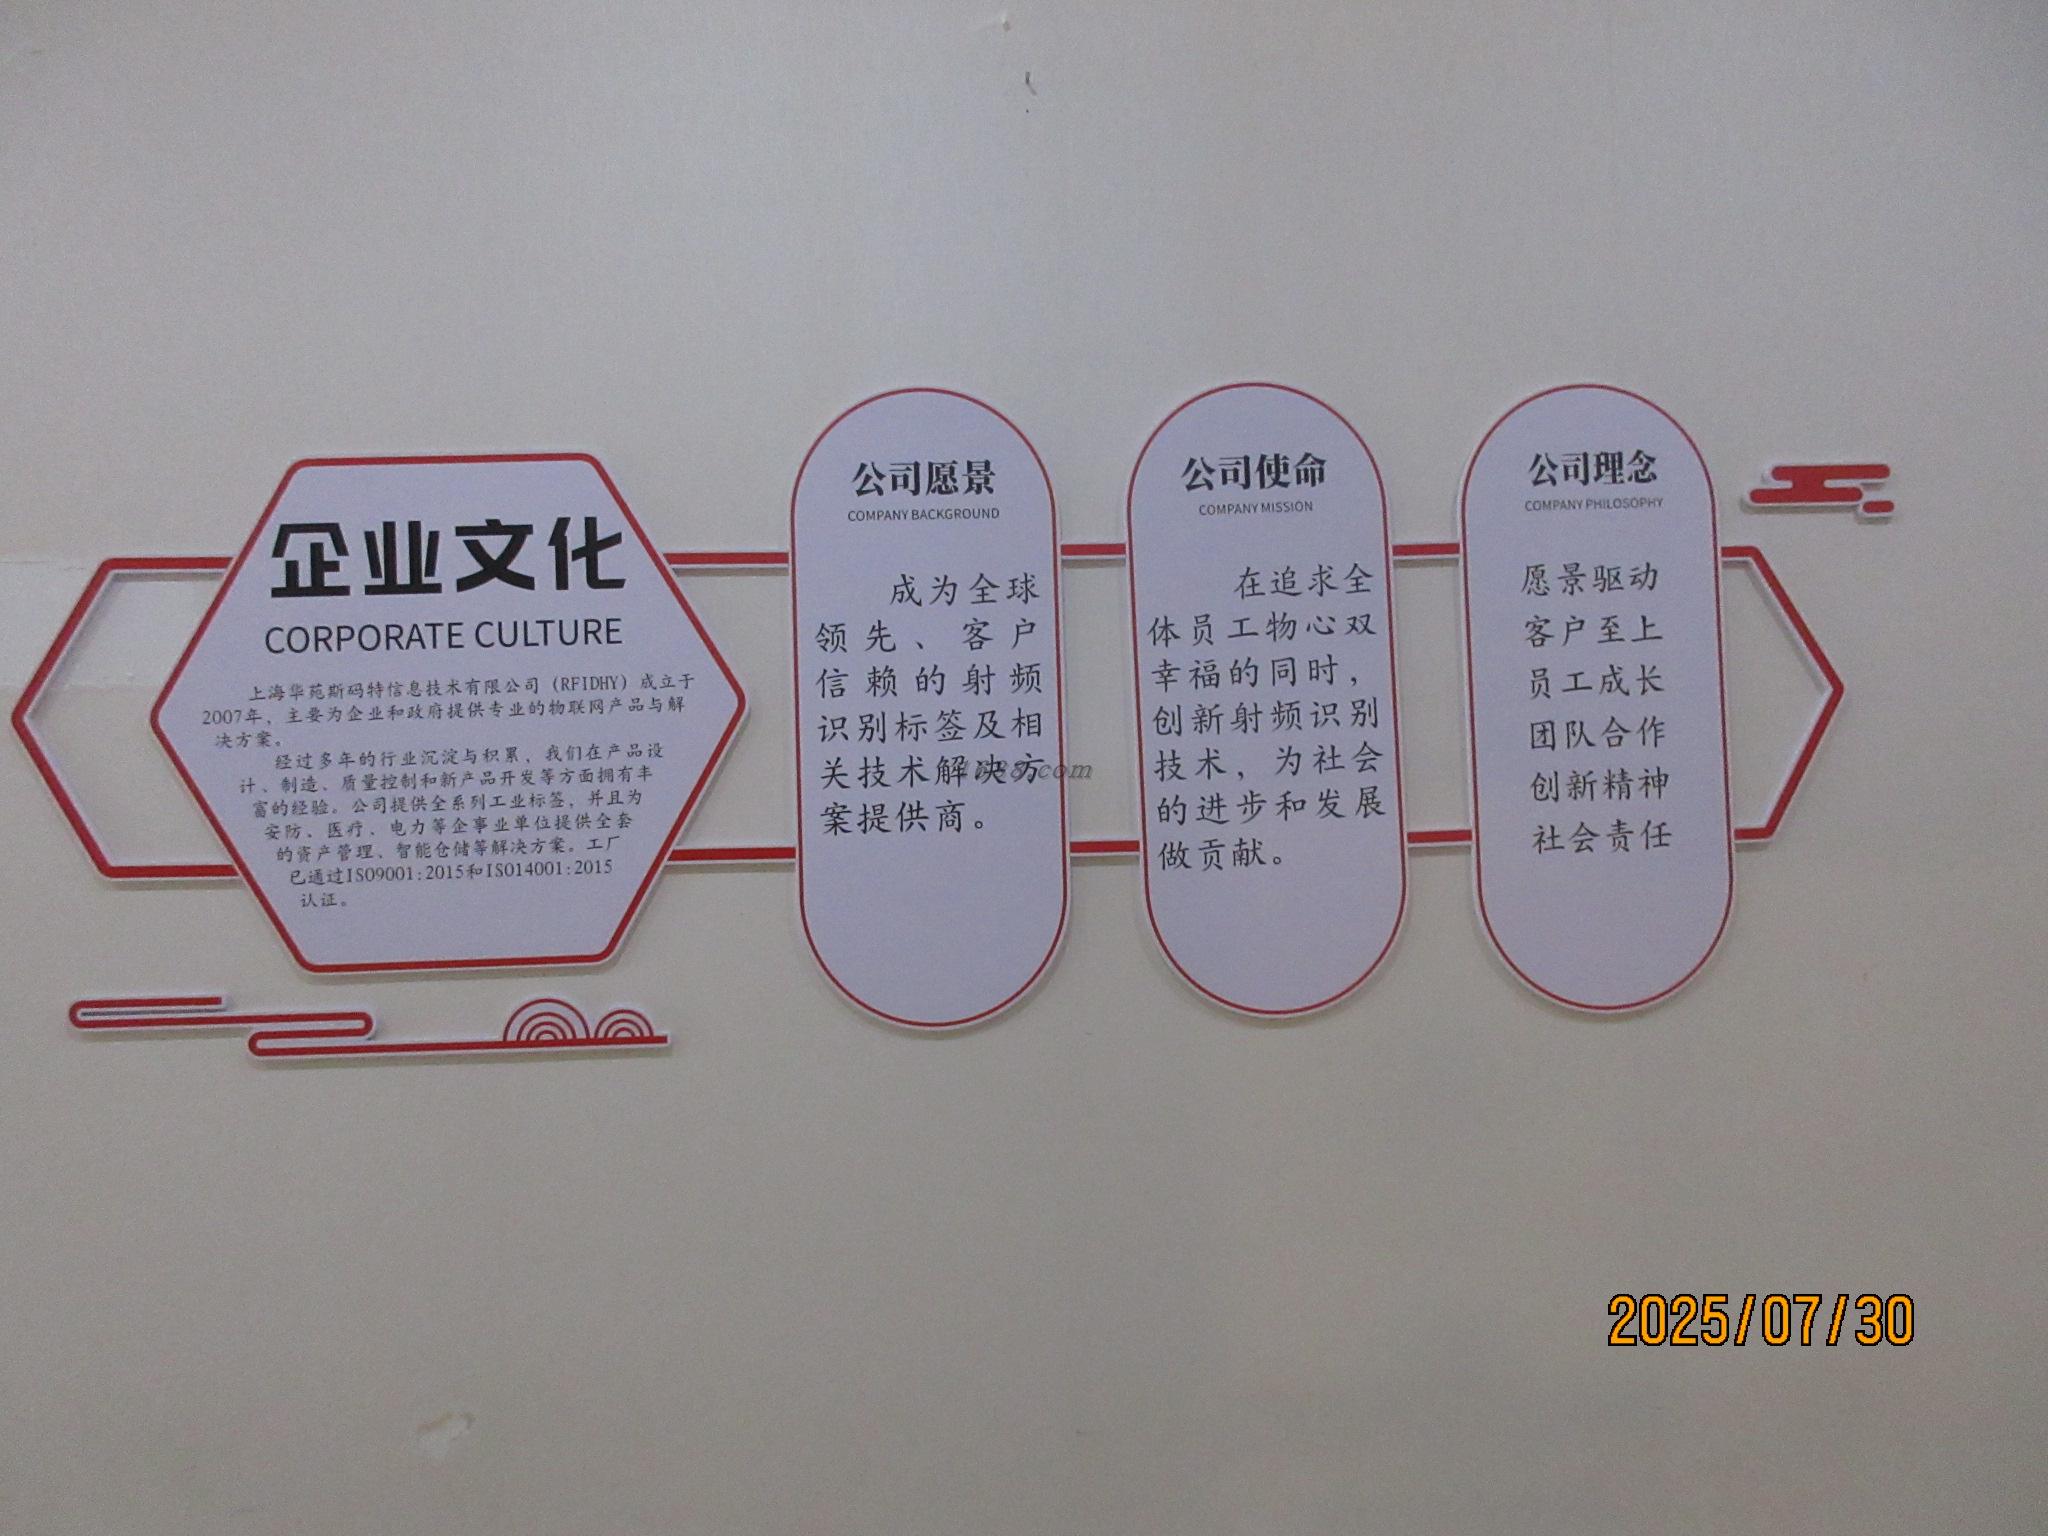 企业文化
CORPORATE CULTURE
上海华苑斯码特信息技术有限公司（RFIDHY）成立于
2007年，主要为企业和政府提供专业的物联网产品与解
决方案。
经过多年的行业沉淀与积累，我们在产品设
计、制造、质量控制和新产品开发等方面拥有丰
富的经验。公司提供全系列工业标签，并且为
安防、医疗、电力等企事业单位提供全套
的资产管理、智能仓储等解决方案。工厂
已通过ISO9001:2015和ISO14001:2015
认证。
公司愿景
COMPANY BACKGROUND
成为全球
领先、客户
信赖的射频
识别标签及相
关技术解决方
案提供商。
公司使命
COMPANY MISSION
在追求全
体员工物心双
幸福的同时，
创新射频识别
技术，为社会
的进步和发展
做贡献。
公司理念
COMPANY PHILOSOPHY
愿景驱动
客户至上
员工成长
团队合作
创新精神
社会责任
2025/07/30